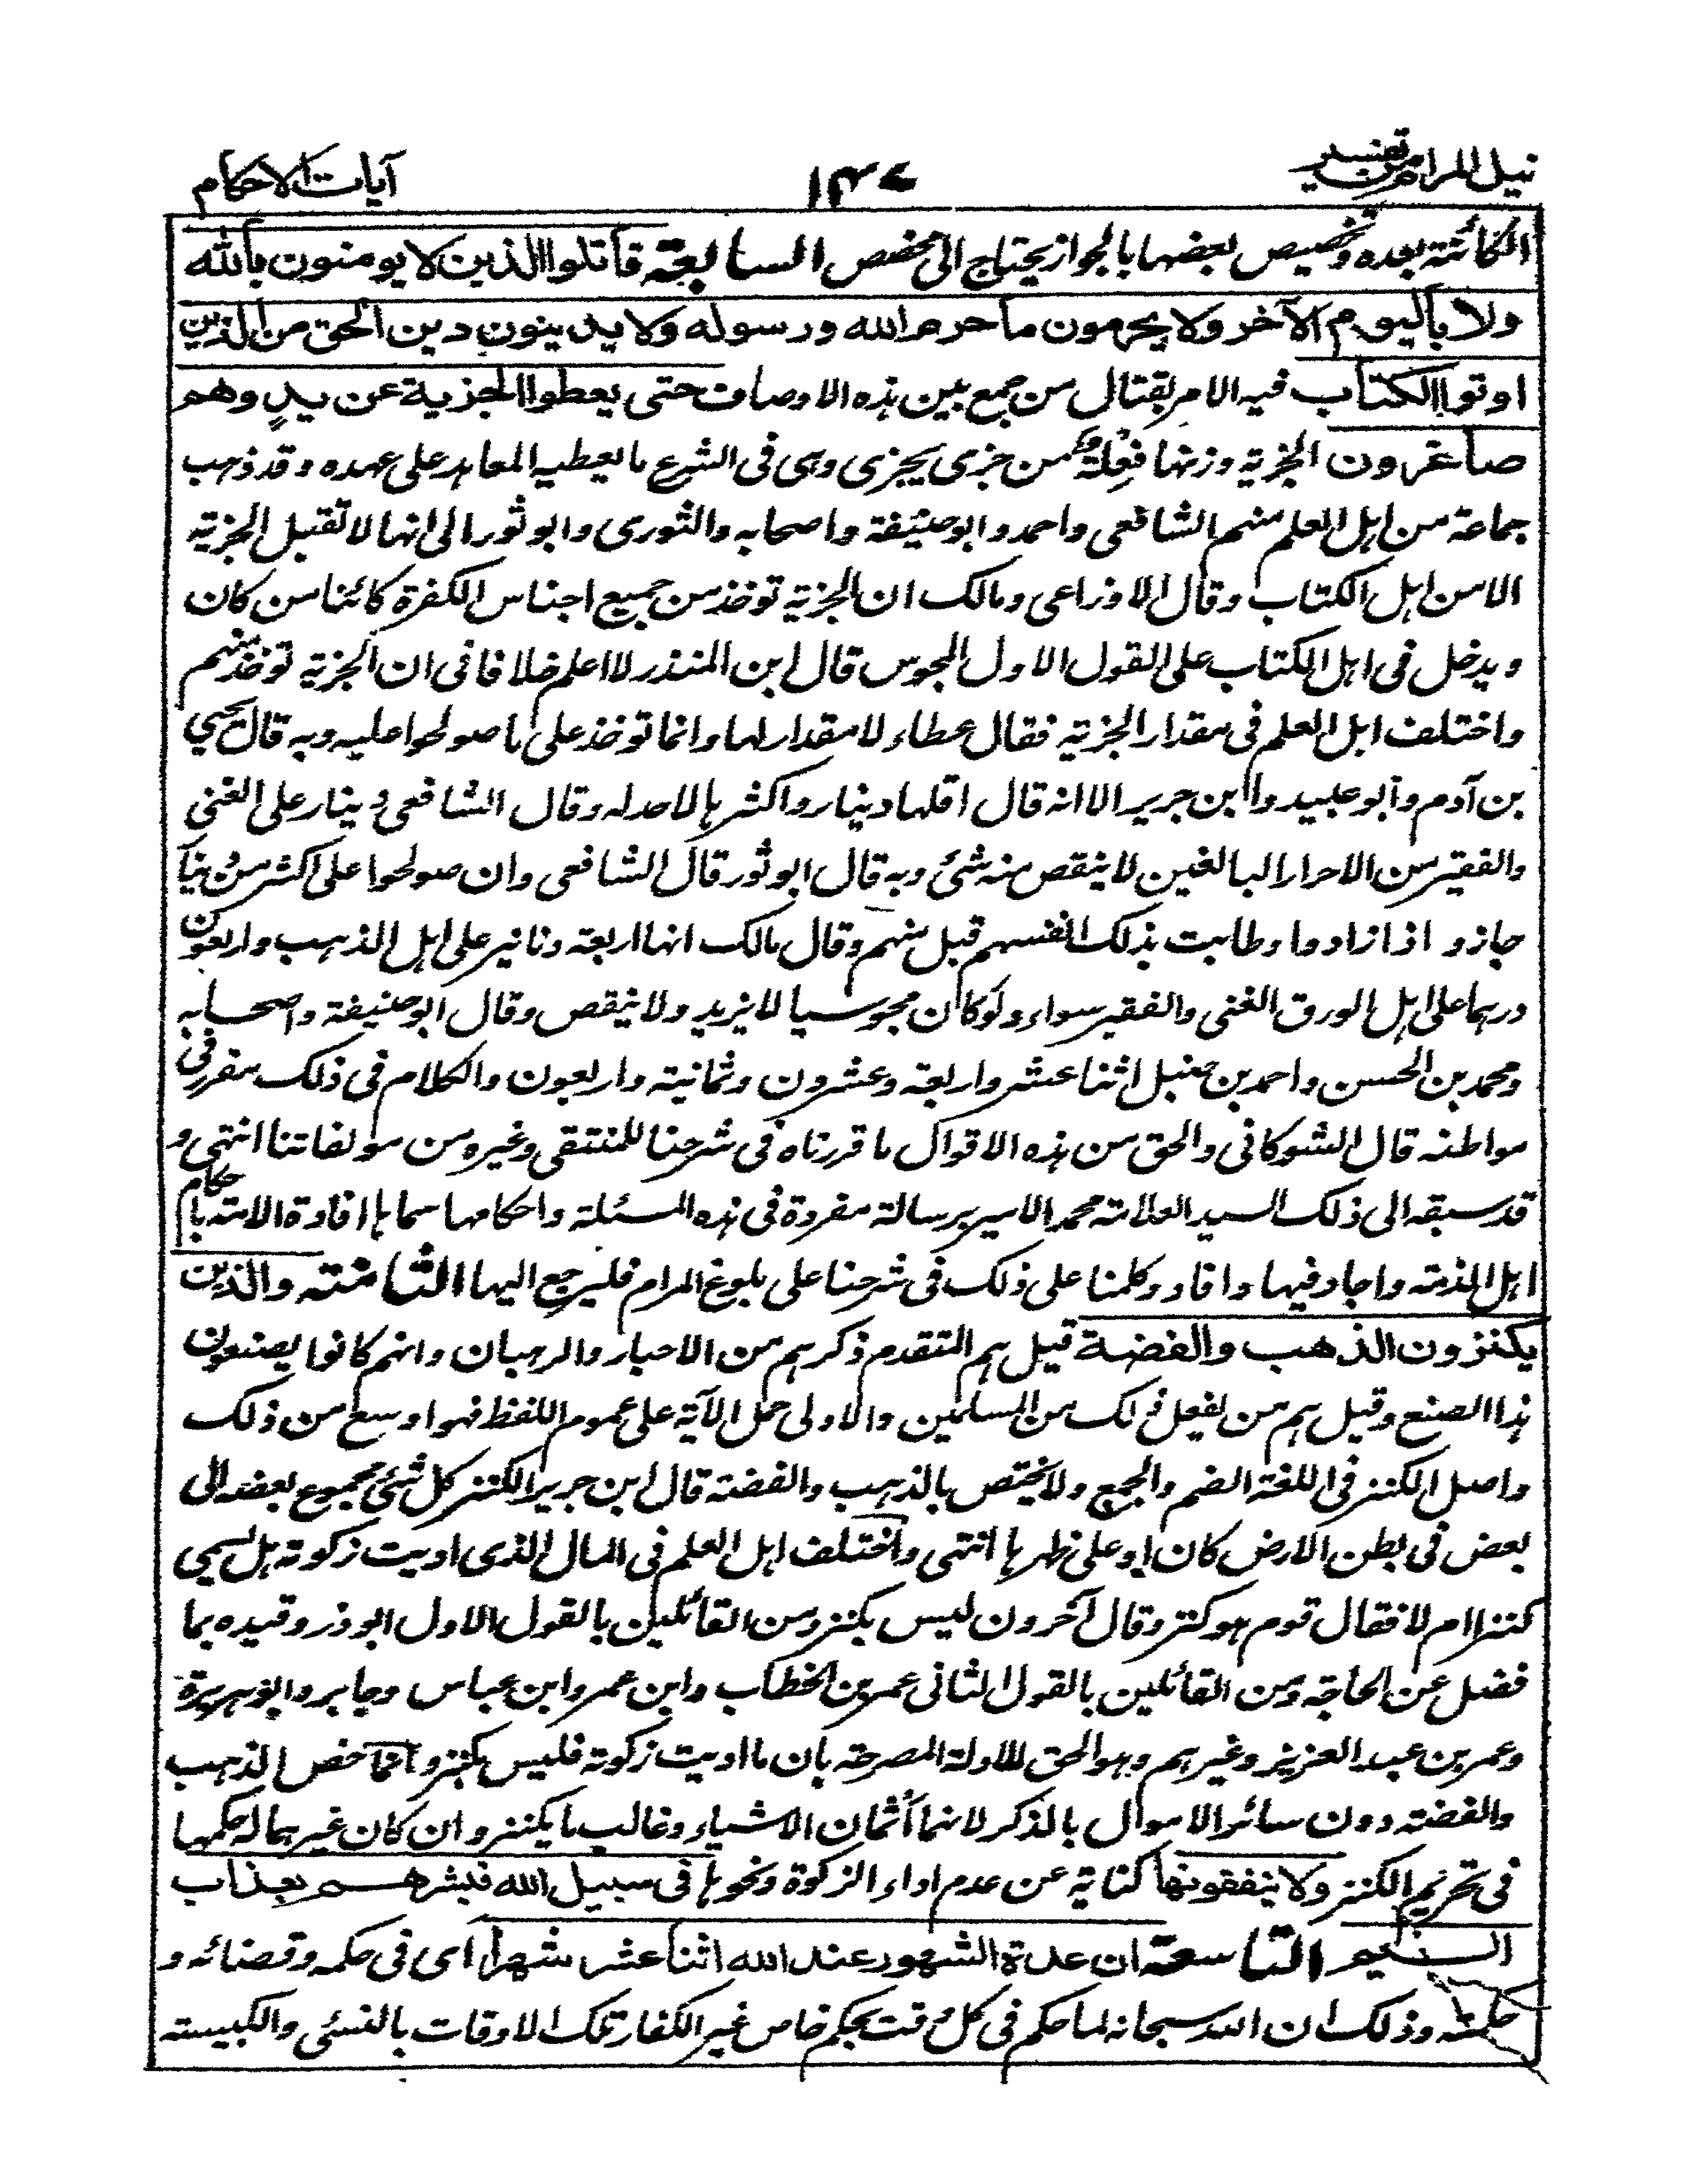 نيل المرام من تفسير ١٣٧ آيات الاحكام
الكائنة بعده وتخصيص بعضها بالجواز يحتاج الى مخصص السابعة قاتلوا الذين لا يومنون بالله
ولا باليوم الآخر ولا يحرمون ما حرم الله ورسوله ولا يدينون دين الحق من الذين
اوتوا الكتاب فيه الامر بقتال من جمع بين هذه الاوصاف حتى يعطوا الجزية عن يدٍ وهم
صاغرون الجزية وزنها فِعلة من جزى يجزى وهى فى الشرع ما يعطيه المعاهد على عهده وقد ذهب
جماعة من اهل العلم منهم الشافعى واحمد وابوحنيفة واصحابه والثورى وابو ثور الى انها لا تقبل الجزية
الا من اهل الكتاب وقال الاوزاعى ومالك ان الجزية توخذ من جميع اجناس الكفرة كائنا من كان
ويدخل فى اهل الكتاب على القول الاول المجوس قال ابن المنذر لا اعلم خلافا فى ان الجزية توخذ منهم
واختلف اهل العلم فى مقدار الجزية فقال عطاء لا مقدار لها وانما توخذ على ما صولحوا عليه وبه قال يحيي
بن آدم وابو عبيد وابن جرير الا انه قال اقلها دينار واكثرها لا حد له وقال الشافعى دينار على الغنى
والفقير من الاحرار البالغين لا ينقص منه شئ وبه قال ابو ثور قال الشافعى وان صولحوا على اكثر من دينار
جاز و اذا زادوا وطابت بذلك انفسهم قبل منهم وقال مالك انها اربعة دنانير على اهل الذهب واربعون
درهما على اهل الورق الغنى والفقير سواء ولو كان مجوسيا لا يزيد ولا ينقص وقال ابوحنيفة واصحابه
ومحمد بن الحسن واحمد بن حنبل اثنا عشر واربعة وعشرون وثمانية واربعون والكلام فى ذلك مقرر فى
مواطنه قال الشوكانى والحق من هذه الاقوال ما قررناه فى شرحنا للمنتقى وغيره من مولفاتنا انتهى و
قد سبقه الى ذلك السيد العلامة محمد الامير برسالة مفردة فى هذه المسئلة واحكامها سماها افادة الامة باحكام
اهل الذمة واجاد فيها وافاد وكلمنا على ذلك فى شرحنا على بلوغ المرام فليرجع اليها الثامنة والذين
يكنزون الذهب والفضة قيل هم المتقدم ذكرهم من الاحبار والرهبان وانهم كانوا يصنعون
هذا الصنع وقيل هم من يفعل ذلك من المسلمين والاولى حمل الآية على عموم اللفظ فهو اوسع من ذلك
واصل الكنز فى اللغة الضم والجمع ولا يختص بالذهب والفضة قال ابن جرير الكنز كل شئ مجموع بعضه الى
بعض فى بطن الارض كان او على ظهرها انتهى واختلف اهل العلم فى المال الذى اديت زكوته هل يسمى
كنزا ام لا فقال قوم هو كنز وقال آخرون ليس بكنز ومن القائلين بالقول الاول ابوذر وقيده بما
فضل عن الحاجة ومن القائلين بالقول الثانى عمر بن الخطاب وابن عمر وابن عباس وجابر وابوهريرة
وعمر بن عبد العزيز وغيرهم وهو الحق للادلة المصرحة بان ما اديت زكوته فليس بكنز وانما خص الذهب
والفضة دون سائر الاموال بالذكر لانهما أثمان الاشياء وغالب ما يكنز وان كان غيرهما له حكمهما
فى تحريم الكنز ولا ينفقونها كناية عن عدم اداء الزكوة ونحوها فى سبيل الله فبشرهم بعذاب
اليم التاسعة ان عدة الشهور عند الله اثنا عشر شهرا اى فى حكمه وقضائه و
حكمته وذلك ان الله سبحانه لما حكم فى كل وقت بحكم خاص غير الكفار تلك الاوقات بالنسئى والكبيسة